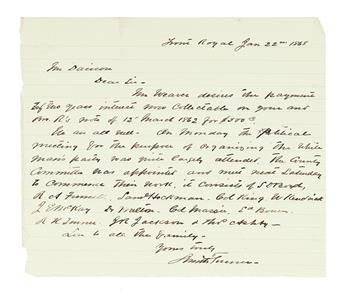 Front Royal Jan 22nd 1868
Mr Davison
Dear Sir -
Mr Weaver desires the payment
of the years interest now collectable on your and
Mr. R's note of 12th March 1862 for $500
We are all well - On Monday the political
meeting for the purpose of organizing the white
man's party was quite largely attended. The County
Committee was appointed and meet next Saturday
to commence their work. it consists of
Hickman. Col King. W Kendrick
J E McKay Dr Walton. Col Massie, Bowen.
R H Turner. Jackson & Thos Ashby -
Love to all the family -
Yours truly
Smith Turner -